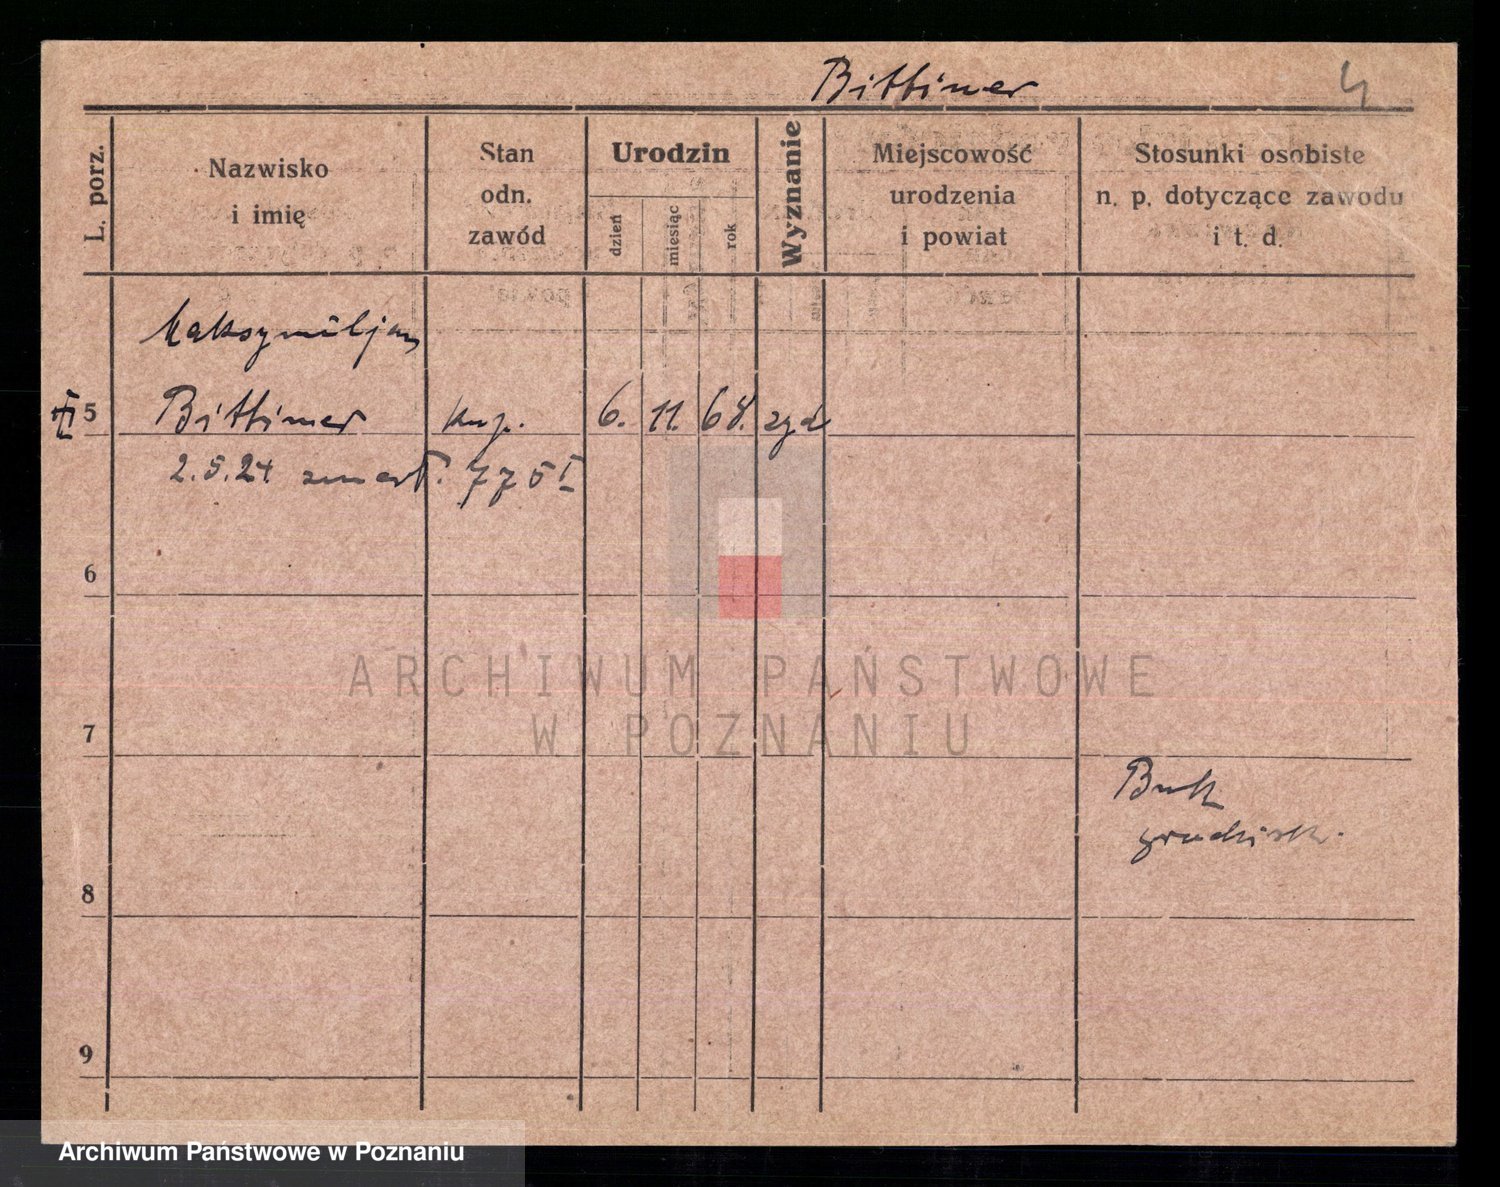 Bittiner 4
L. porz.
Nazwisko
i imię
Stan
odn.
zawód
Urodzin
dzień
miesiąc
rok
Wyznanie
Miejscowość
urodzenia
i powiat
Stosunki osobiste
n. p. dotyczące zawodu
i t. d.
Maksymiljan
5 Bittiner kup. 6. 11. 68. żyd
2.5.24 zmarł. 775 I
6
ARCHIWUM PAŃSTWOWE
W POZNANIU
7
Buk
grodzisk.
8
9
Archiwum Państwowe w Poznaniu